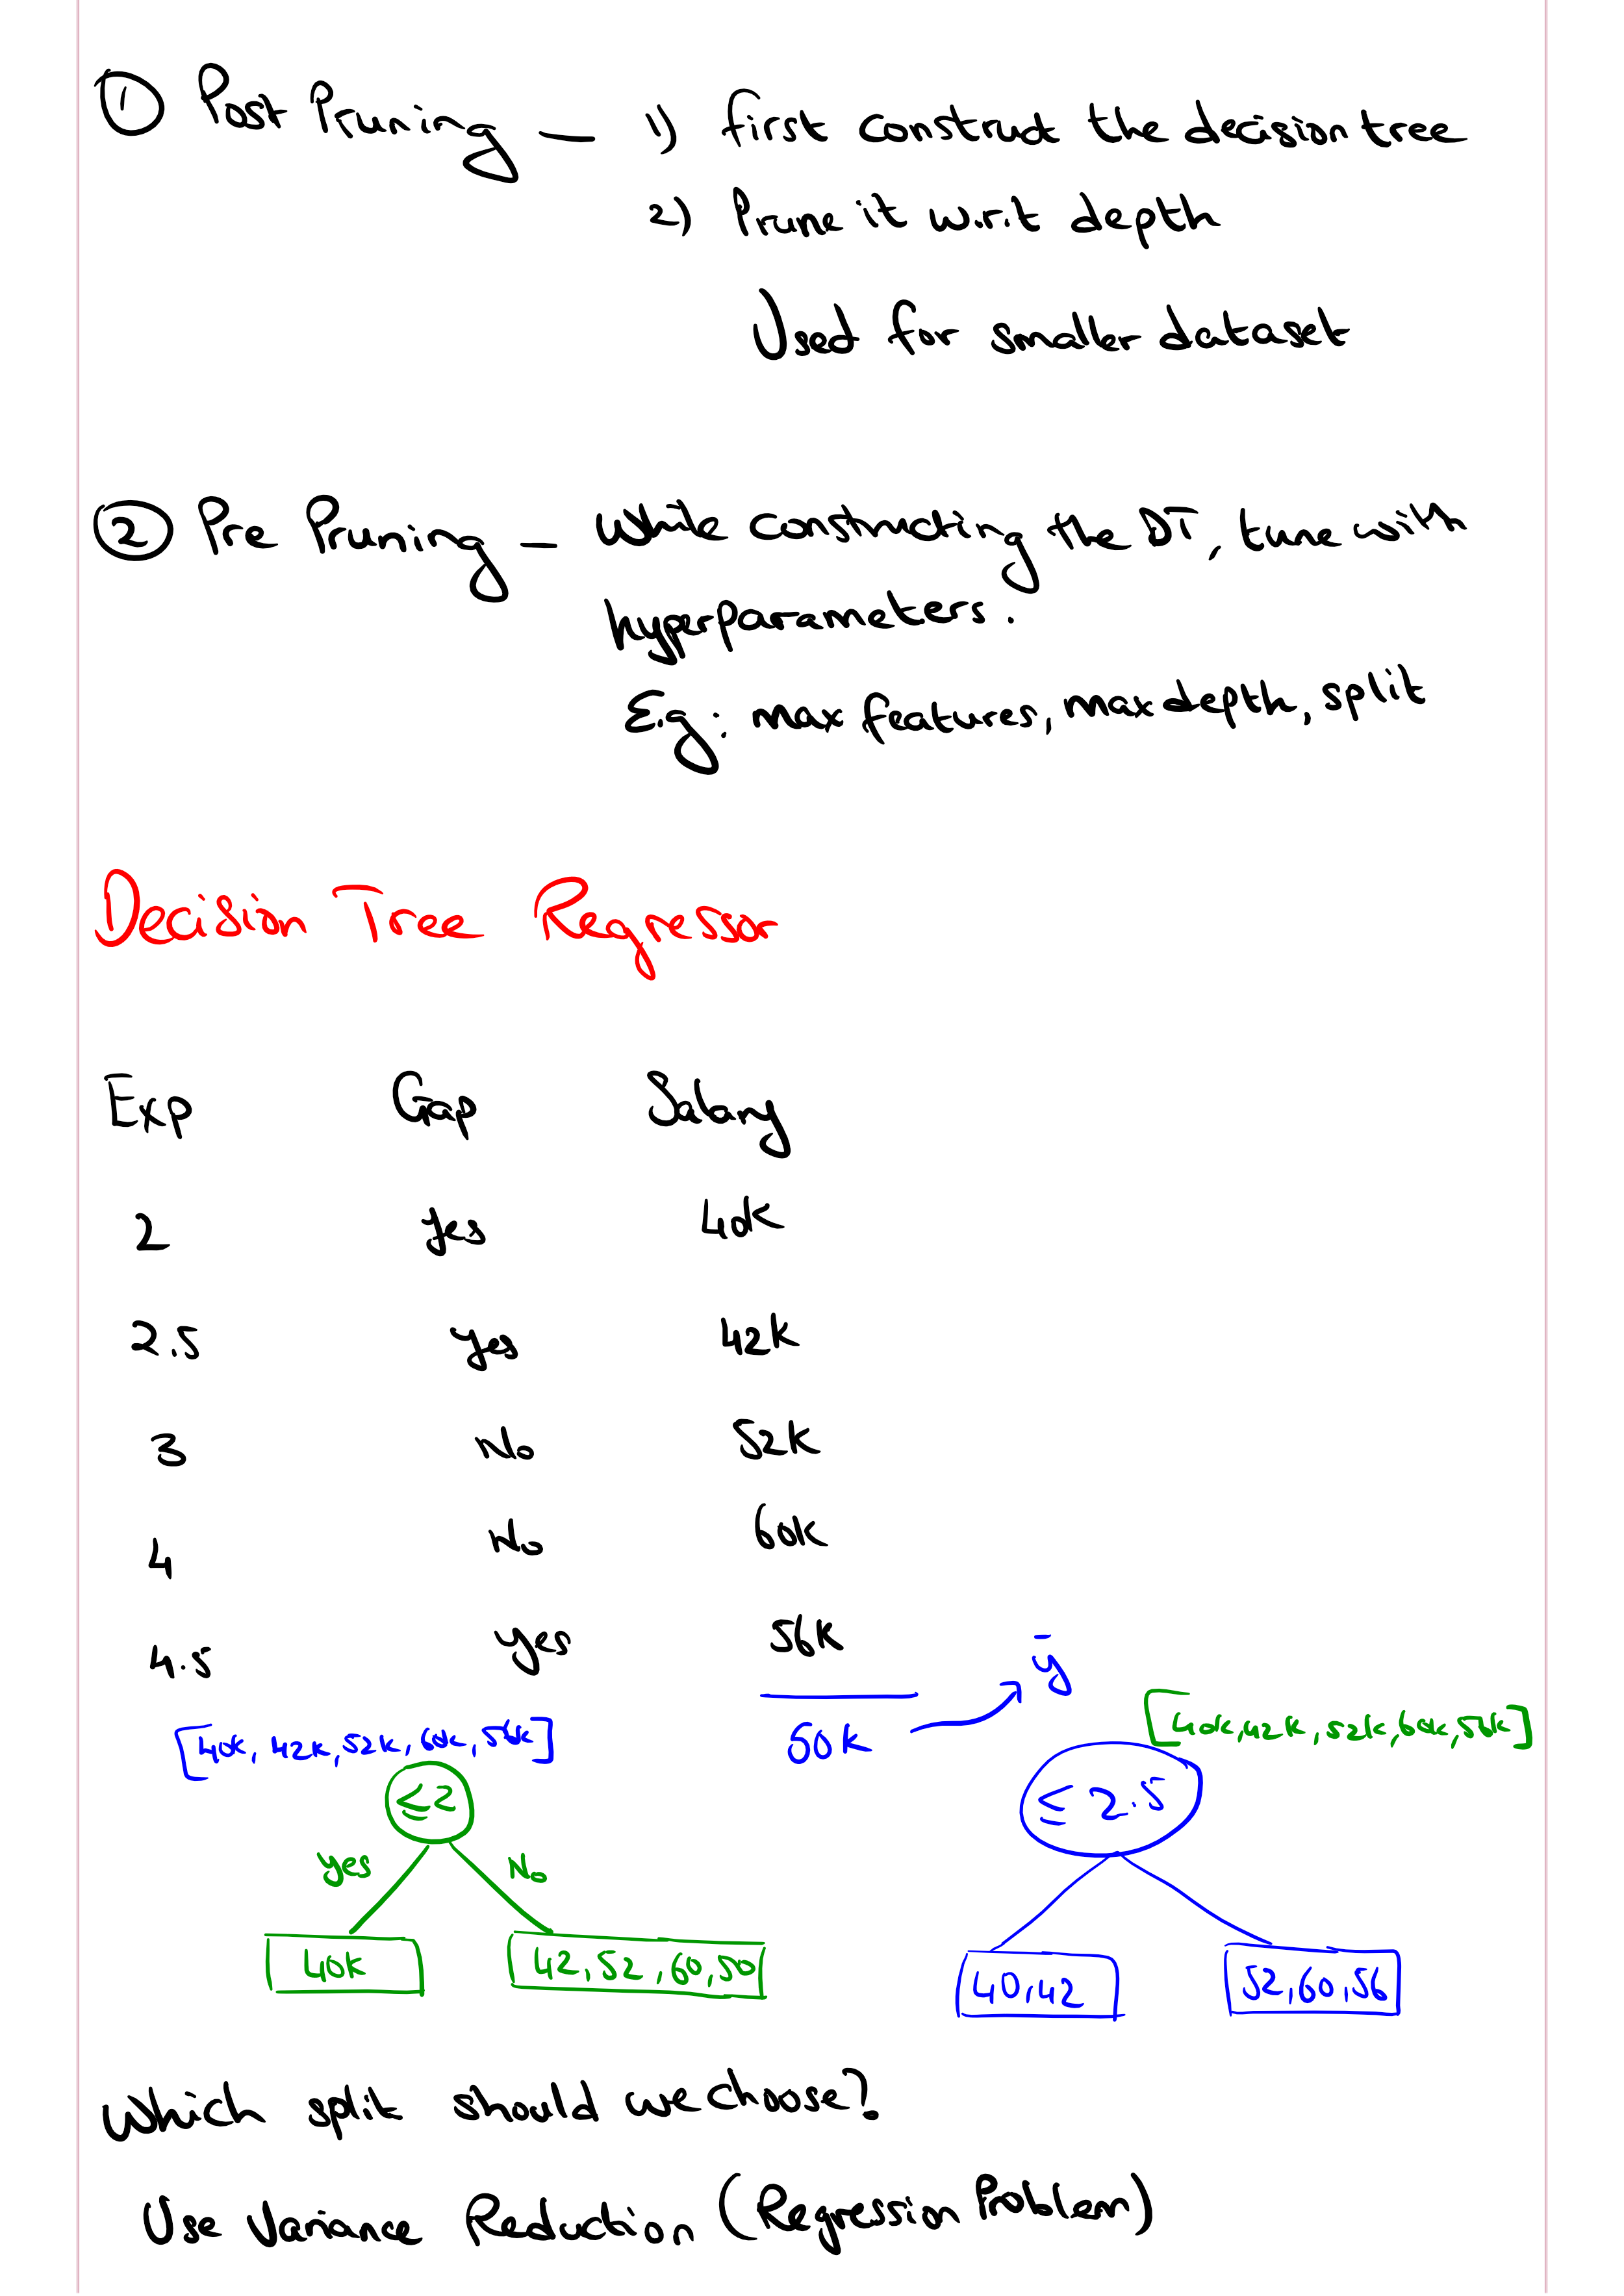 ① Post Pruning — 1) first construct the decision tree
2) Prune it w.r.t depth
Used for smaller dataset
② Pre Pruning — While constructing the DT, tune with
hyperparameters.
E.g: max features, max depth, split
Decision Tree Regressor
Exp Gap Salary
2 yes 40k
2.5 yes 42k
3 No 52k
4 No 60k
4.5 yes 56k
ȳ
[40k, 42k, 52k, 60k, 56k] 50k [40k, 42k, 52k, 60k, 56k]
≤2 ≤ 2.5
yes No
40k 42, 52, 60, 50 40, 42 52, 60, 56
Which split should we choose?
Use Variance Reduction (Regression Problem)